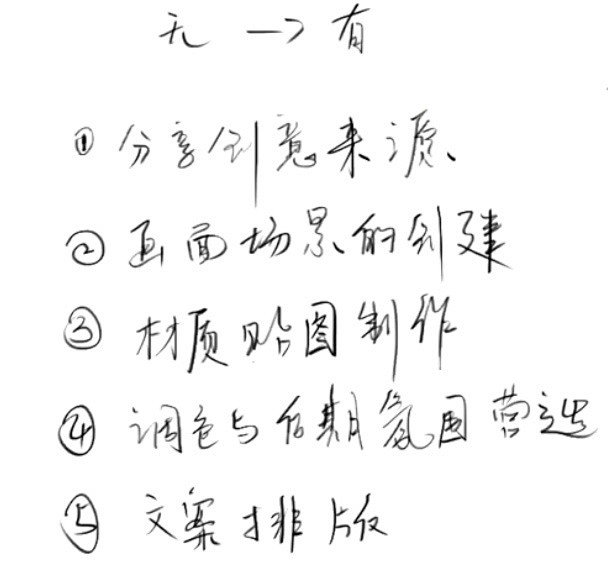 无 —> 有
① 分享创意来源、
② 画面场景的创建
③ 材质贴图制作
④ 调色与后期氛围营造
⑤ 文案排版